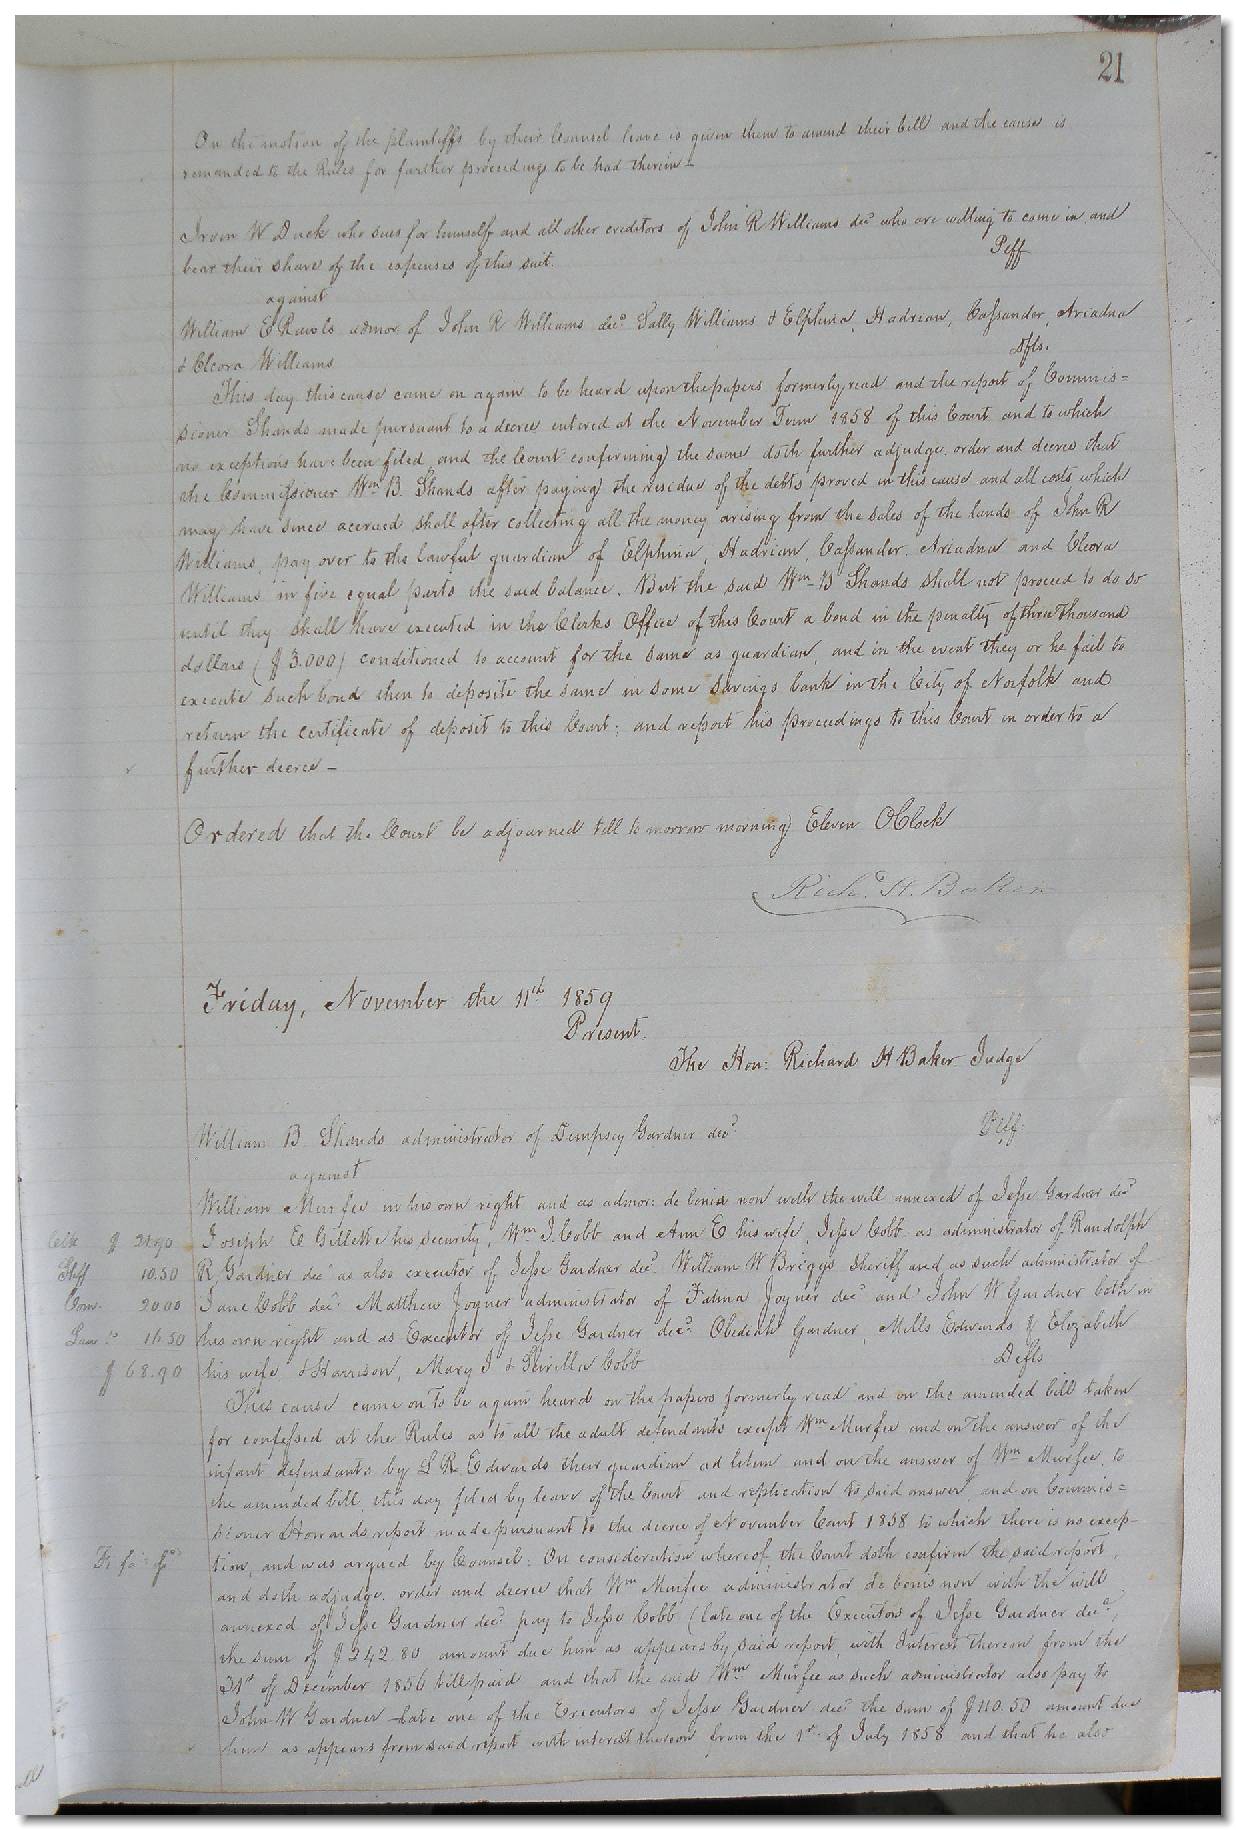 21
On the motion of the plaintiffs by their Counsel leave is given them to amend their bill and the cause is
remanded to the Rules for further proceedings to be had therein -
Irvin W Duck who sues for himself and all other creditors of John R Williams decd who are willing to come in and
bear their share of the expenses of this suit. Plff
against
William E Rawls admor of John R Williams decd Sally Williams & Elphina, Hadrian, Cassander, Ariadna
& Cleora Williams Dfts.
This day this cause came on again to be heard upon the papers formerly read and the report of Commis=
sioner Shands made pursuant to a decree entered at the November Term 1858 of this Court and to which
no exceptions have been filed and the Court confirming the same doth further adjudge, order and decree that
the Commissioner Wm B. Shands after paying the residue of the debts proved in this cause and all costs which
may have since accrued shall after collecting all the money arising from the sales of the lands of John R
Williams, pay over to the lawful guardian of Elphina, Hadrian, Cassander, Ariadna and Cleora
Williams in five equal parts the said balance. But the said Wm B Shands shall not proceed to do so
until they shall have executed in the Clerks Office of this Court a bond in the penalty of three thousand
dollars ($3.000) conditioned to account for the same as guardian, and in the event they or he fail to
execute such bond then to deposite the same in some Savings bank in the City of Norfolk and
return the certificate of deposit to this Court; and report his proceedings to this Court in order to a
further decree -
Ordered that the Court be adjourned till tomorrow morning Eleven OClock
Richd. H. Baker
Friday, November the 11th 1859
Present.
The Hon: Richard H Baker Judge
William B. Shands administrator of Dempsey Gardner decd Plff
against
William Murfee in his own right and as admor: de bonis non with the will annexed of Jesse Gardner decd
Joseph E Gillette his security, Wm J. Cobb and Ann E his wife, Jesse Cobb as administrator of Randolph
R Gardner decd as also executor of Jesse Gardner decd William W Briggs Sheriff and as such administrator of
Jane Cobb decd Matthew Joyner administrator of Fatima Joyner decd and John W Gardner both in
his own right and as Executor of Jesse Gardner decd Obediah Gardner, Mills Edwards & Elizabeth
his wife & Harrison, Mary J & Cobb Defts
Clk $ 21.90
Shff 10.50
Com. 20.00
16.50
$ 68.90
This cause came on to be again heard on the papers formerly read and on the amended bill taken
for confessed at the Rules as to all the adult defendants except Wm Murfee and on the answer of the
infant defendants by L R Edwards their guardian ad litem and on the answer of Wm Murfee, to
the amended bill, this day filed by leave of the Court and replication to said answer, and on Commis=
sioner Howards report made pursuant to the decree of November Court 1858 to which there is no excep-
tion, and was argued by Counsel: On consideration whereof, the Court doth confirm the said report,
Fi fa
and doth adjudge, order and decree that Wm Murfee administrator de bonis non with the will
annexed of Jesse Gardner decd pay to Jesse Cobb (late one of the Executors of Jesse Gardner decd,
the sum of $242.80 amount due him as appears by said report, with Interest thereon from the
31st of December 1856 till paid and that the said Wm Murfee as such administrator also pay to
John W Gardner late one of the Executors of Jesse Gardner decd the sum of $110.50 amount due
him as appears from said report with interest thereon from the 1st of July 1858 and that he also